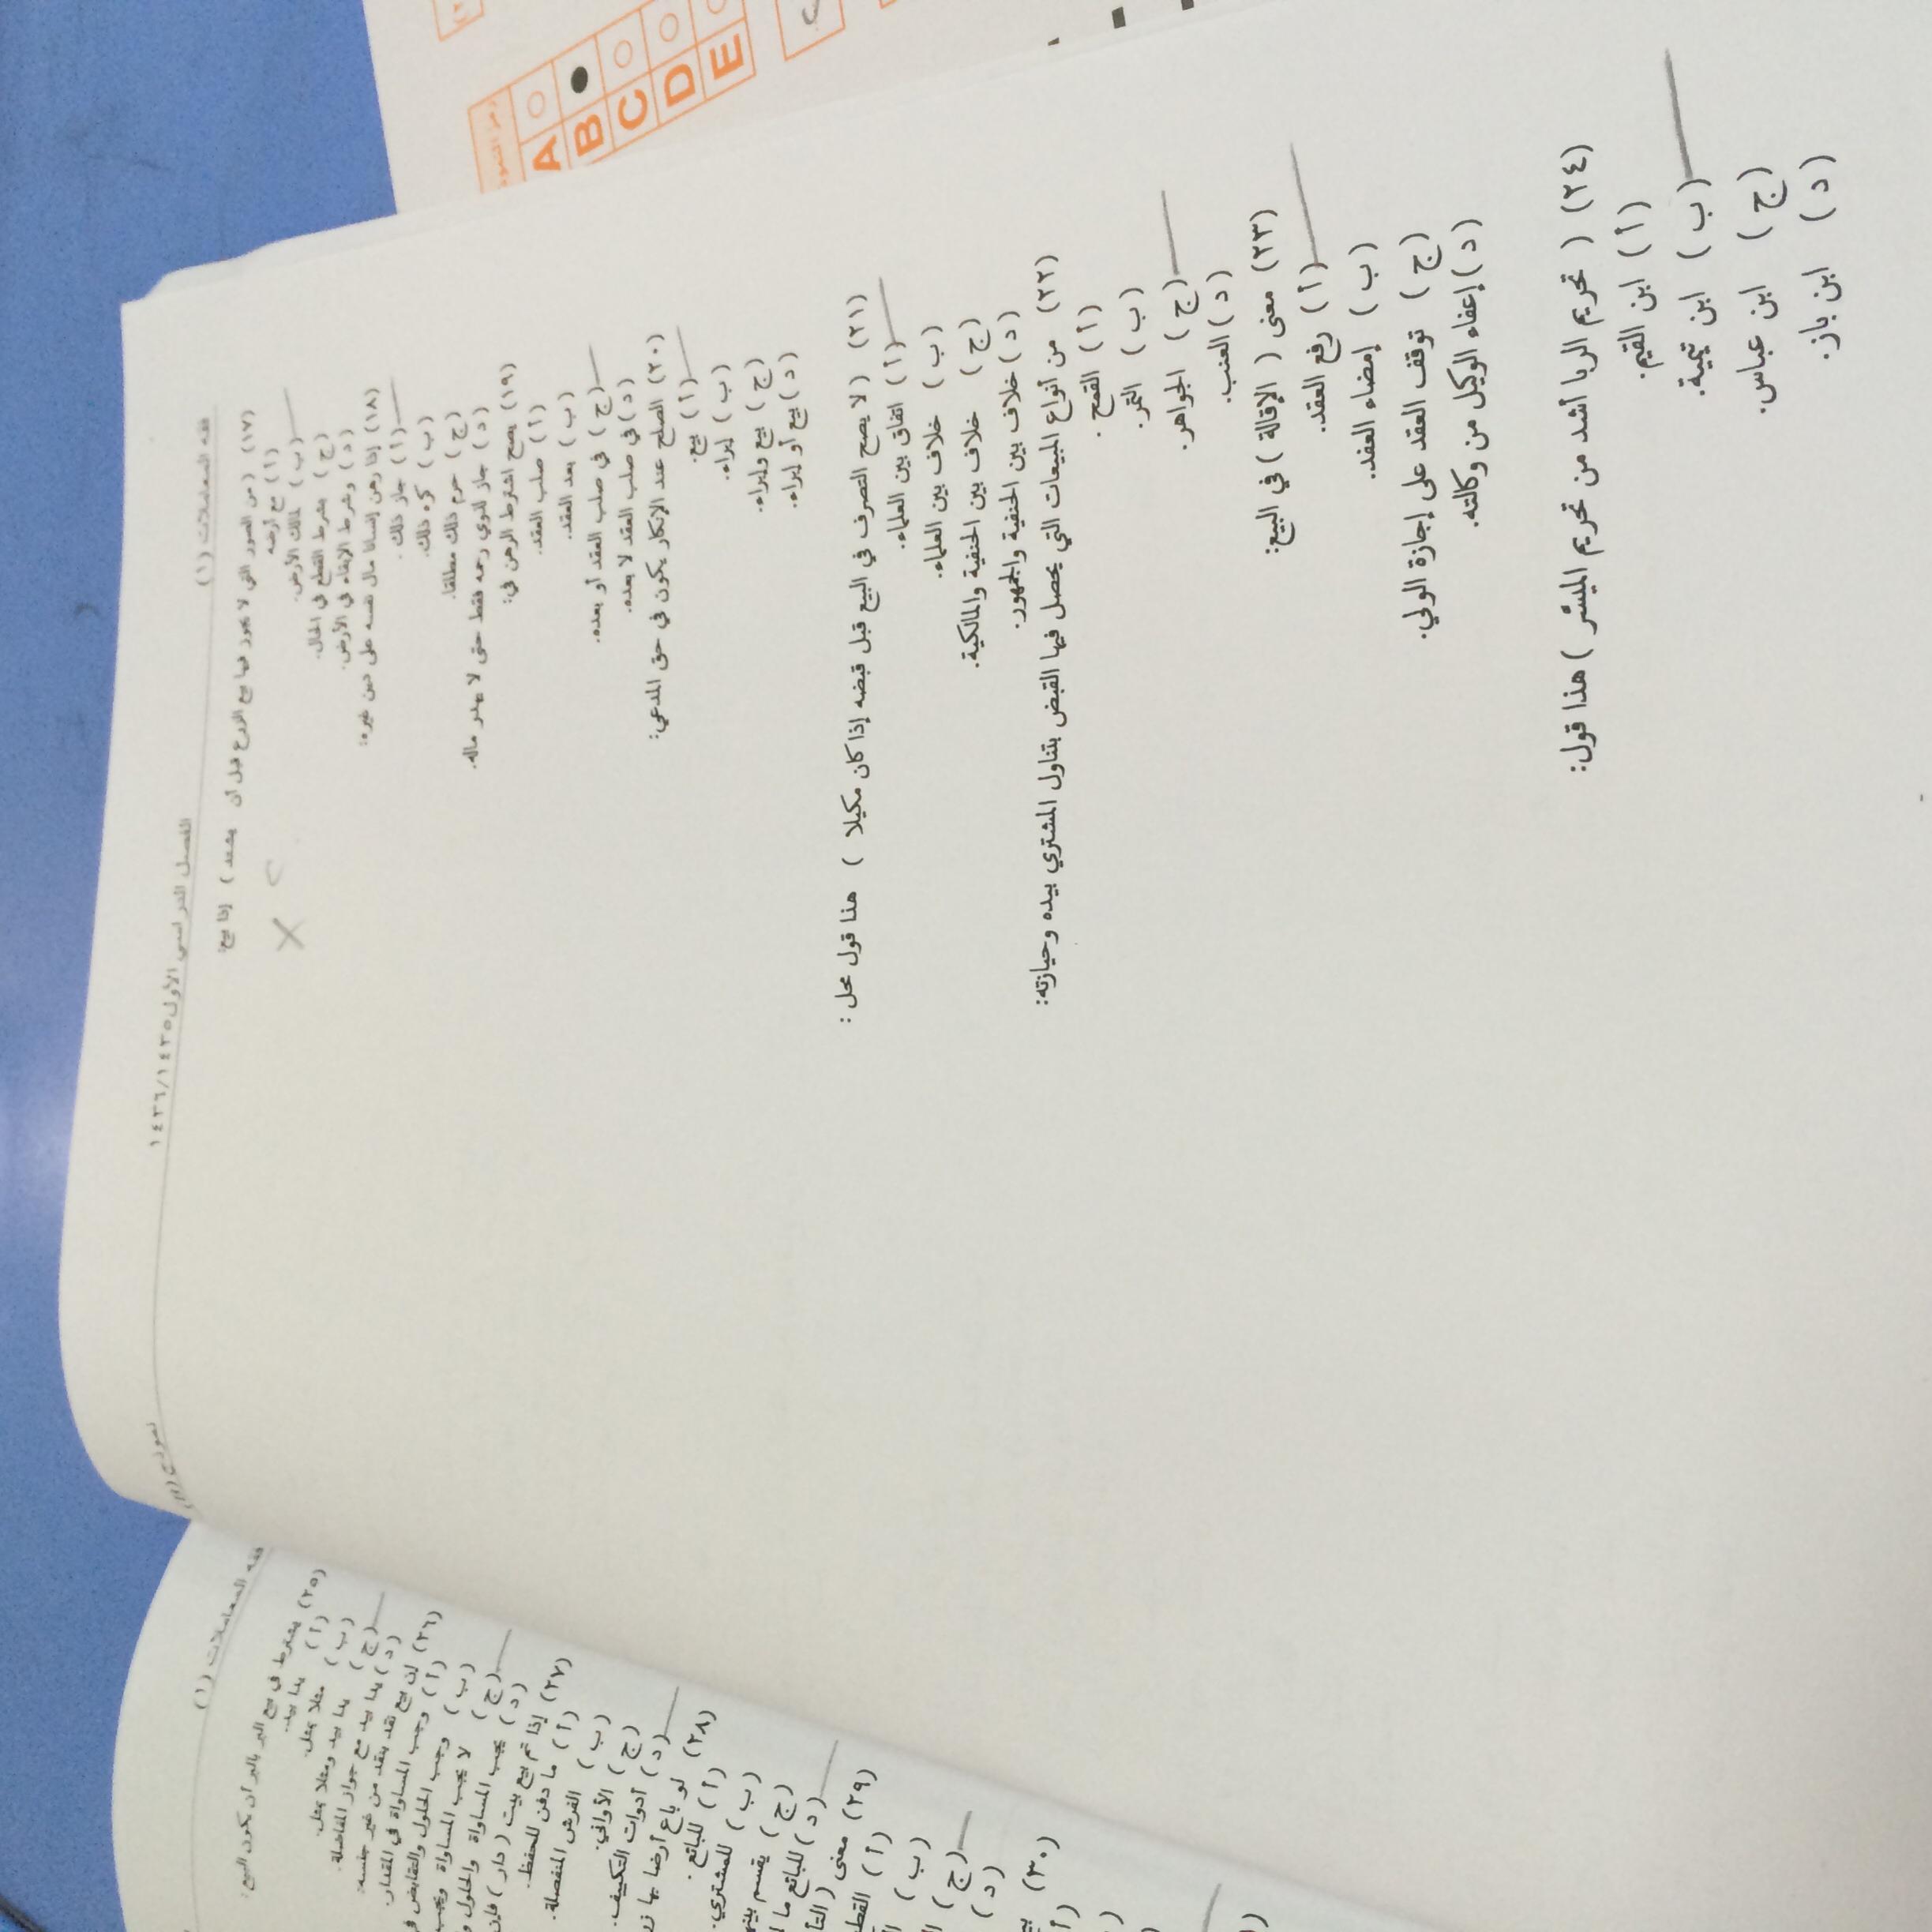 فقه المعاملات (١) الفصل الدراسي الأول ١٤٣٦/١٤٣٥ نموذج (B)
(١٧) ( من الصور التي لا يجوز فيها بيع الزرع قبل أن يشتد ) إذا بيع:
(أ) مع أرضه
(ب) لمالك الأرض.
(ج) بشرط القطع في الحال.
(د) وبشرط الإبقاء في الأرض.
(١٨) إذا رهن إنسانا مال نفسه على دين غيره:
(أ) جاز ذلك.
(ب) كره ذلك.
(ج) حرم ذلك مطلقا.
(د) جاز لذوي رحمه فقط حتى لا يهدر ماله.
(١٩) يصح اشترط الرهن في:
(أ) صلب العقد.
(ب) بعد العقد.
(ج) في صلب العقد أو بعده.
(د) في صلب العقد لا بعده.
(٢٠) الصلح عند الإنكار يكون في حق المدعي:
(أ) بيع.
(ب) إبراء.
(ج) بيع وإبراء.
(د) بيع أو إبراء.
(٢١) ( لا يصح التصرف في البيع قبل قبضه إذا كان مكيلا ) هنا قول محل :
(أ) اتفاق بين العلماء.
(ب) خلاف بين العلماء.
(ج) خلاف بين الحنفية والمالكية.
(د) خلاف بين الحنفية والجمهور.
(٢٢) من أنواع المبيعات التي يحصل فيها القبض بتناول المشتري بيده وحيازته:
(أ) القمح.
(ب) التمر.
(ج) الجواهر.
(د) العنب.
(٢٣) معنى ( الإقالة ) في البيع:
(أ) رفع العقد.
(ب) إمضاء العقد.
(ج) توقف العقد على إجازة الولي.
(د) إعفاء الوكيل من وكالته.
(٢٤) ( تحريم الربا أشد من تحريم الميسر ) هذا قول:
(أ) ابن القيم.
(ب) ابن تيمية.
(ج) ابن عباس.
(د) ابن باز.
فقه المعاملات (١)
(٢٥) يشترط في بيع البر بالبر أن يكون البيع:
(أ) يدا بيد.
(ب) مثلا بمثل.
(ج) يدا بيد ومثلا بمثل.
(د) يدا بيد مع جواز المفاضلة.
(٢٦) إن بيع نقد بنقد من غير جنسه:
(أ) وجب المساواة في المقدار.
(ب) وجب الحلول والتقابض
(ج) لا يجب المساواة
(د) يجب المساواة والحلول
(٢٧) إذا تم بيع بيت ( دار ) فإن
(أ) ما دفن للحفظ.
(ب) الفرش المنفصلة.
(ج) الأواني.
(د) أدوات التكييف.
(٢٨) لو باع أرضا بها
(أ) للبائع.
(ب) للمشتري.
(ج) يقسم
(د) للبائع ما
(٢٩) معنى
(أ)
(ب)
(ج)
(د)
(٣٠)
A
B
C
D
E